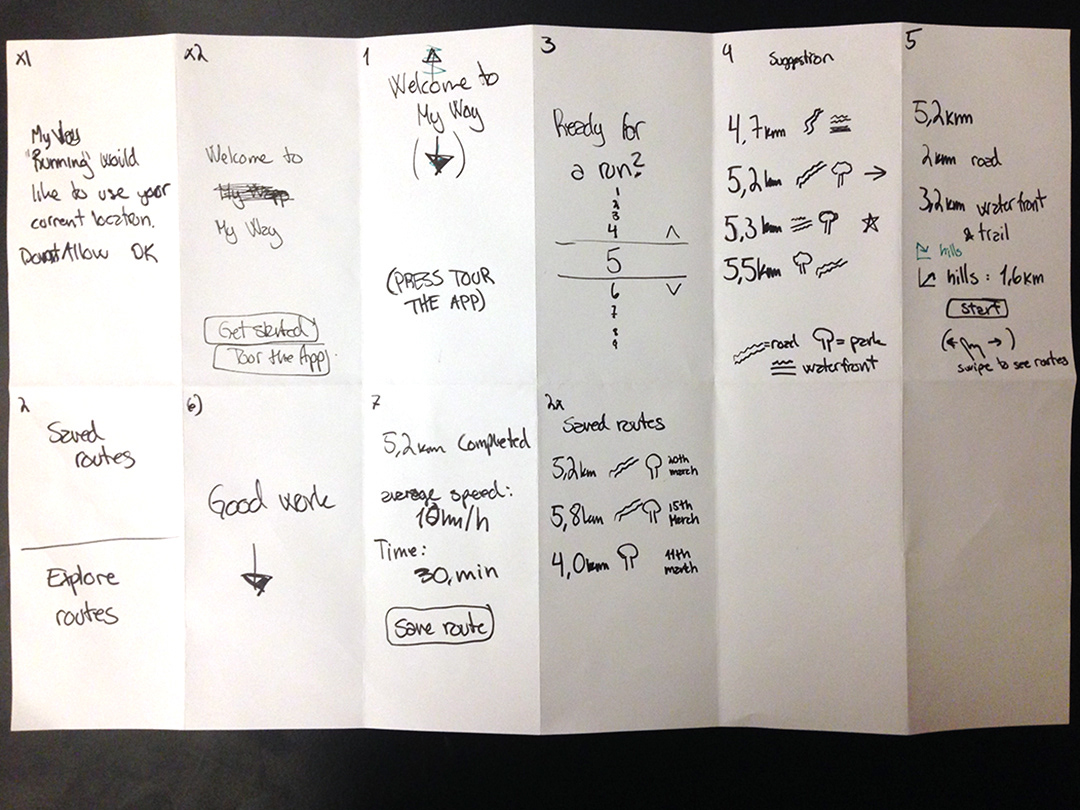 x1
My Way
"Running" would
like to use your
corrent location.
Dont Allow OK
x2
Welcome to
My Way
Get started
Toor the App
1
Welcome to
My Way
(PRESS TOUR
THE APP)
3
Ready for
a run?
1
2
3
4
5
6
7
8
9
4
Suggestion
4,7km
5,2km
5,3km
5,5km
=road = park
waterfront
5
5,2km
2km road
3,2km waterfront
& trail
hills
hills : 1,6km
Start
swipe to see routes
2
Saved
routes
Explore
routes
6)
Good work
7
5,2km Completed
average speed:
10km/h
Time:
30,min
Save route
2x
Saved routes
5,2km 20th
march
5,8km 15th
March
4,0km 11th
march